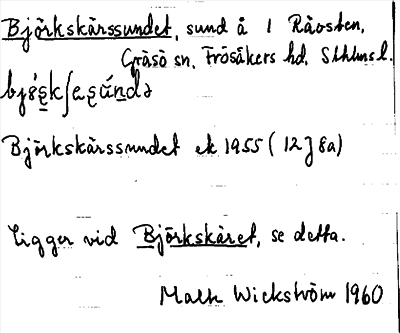 Björkskärssundet, sund å i Råosten,
Gräsö sn, Frösåkers hd, Sthlms l.
Björkskärssundet ek 1955 (12J8a)
Ligger vid Björkskäret, se detta.
Wickström 1960